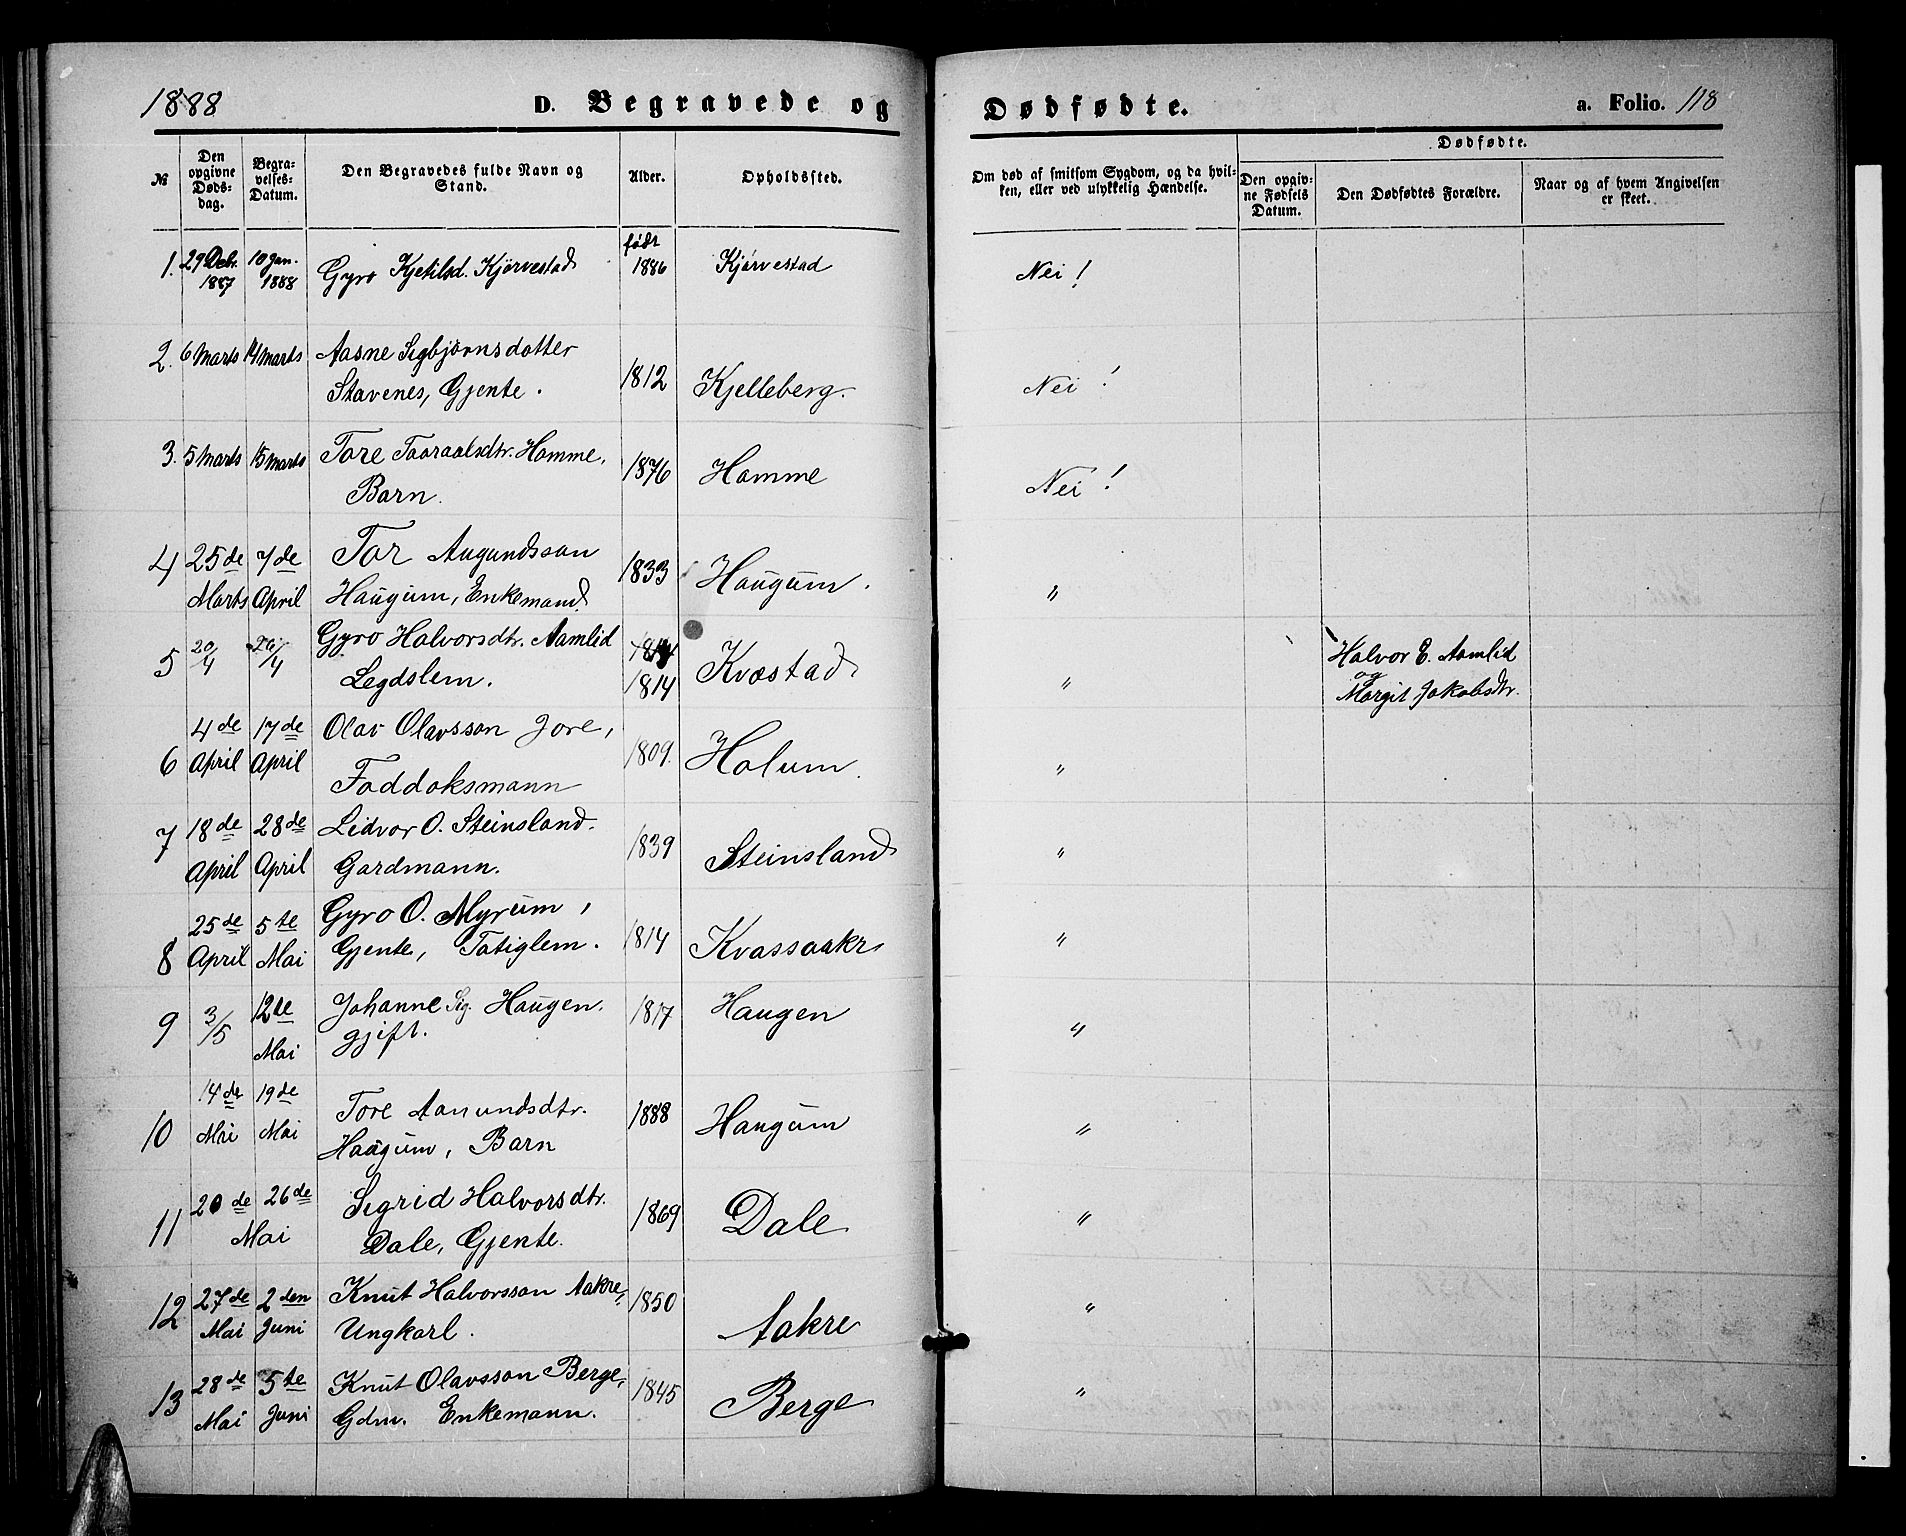 1888
D. Begravede og Dødfødte.
a. Folio. 118
№
Den opgivne Døds-dag.
Begra-velses-Datum.
Den Begravedes fulde Navn og Stand.
Alder.
Opholdssted.
Om død af smitsom Sygdom, og da hvil-ken, eller ved ulykkelig Hændelse.
Dødfødte.
Den opgiv-ne Fødsels Datum.
Den Dødfødtes Forældre.
Naar og af hvem Angivelsen er skeet.
1. 29 Debr. 1887 10 Jan. 1888 Gyro Kjetilsd. Kjørvestad født 1886 Kjørvestad Nei!
2. 6 Marts 14 Marts Aasne Sigbjørnsdotter
Stavenes, Gjente. 1812 Kjelleberg. Nei!
3. 5 Marts 15 Marts Tore Taaraalsdtr. Homme,
Barn. 1876 Homme Nei!
4 25de Marts 7de April Tor Augundsson
Haugum, Enkemand. 1833 Haugum. "
5 20/4 /4 Gyro Halvorsdtr. Aamlid
Legdslem. 1814 Kvæstad " Halvor E. Aamlid
og
Margit Jakobsdtr.
6 4de April 17de April Olav Olavsson Jore,
Foddoksmann 1809. Holum. "
7 18de April 28de April Lidvor O. Steinsland.
Gardmann. 1839 Steinsland "
8 25de April 5te Mai Gyro O. Myrum,
Gjente, Fatiglem. 1814 Kvassaakr "
9 3/5 12de Mai Johanne Sig. Haugen.
gjift. 1817 Haugen "
10 14de Mai 19de Mai Tore Aanundsdtr.
Haugum, Barn 1888 Haugum "
11 20de 26de Mai Sigrid Halvorsdtr.
Dale, Gjente. 1869 Dale "
12 27de Mai 2den Juni Knut Halvorsson Aakre,
Ungkarl. 1850 Aakre "
13 28de Mai 5te Juni Knut Olavsson Berge,
Gdm. Enkemann. 1845 Berge "